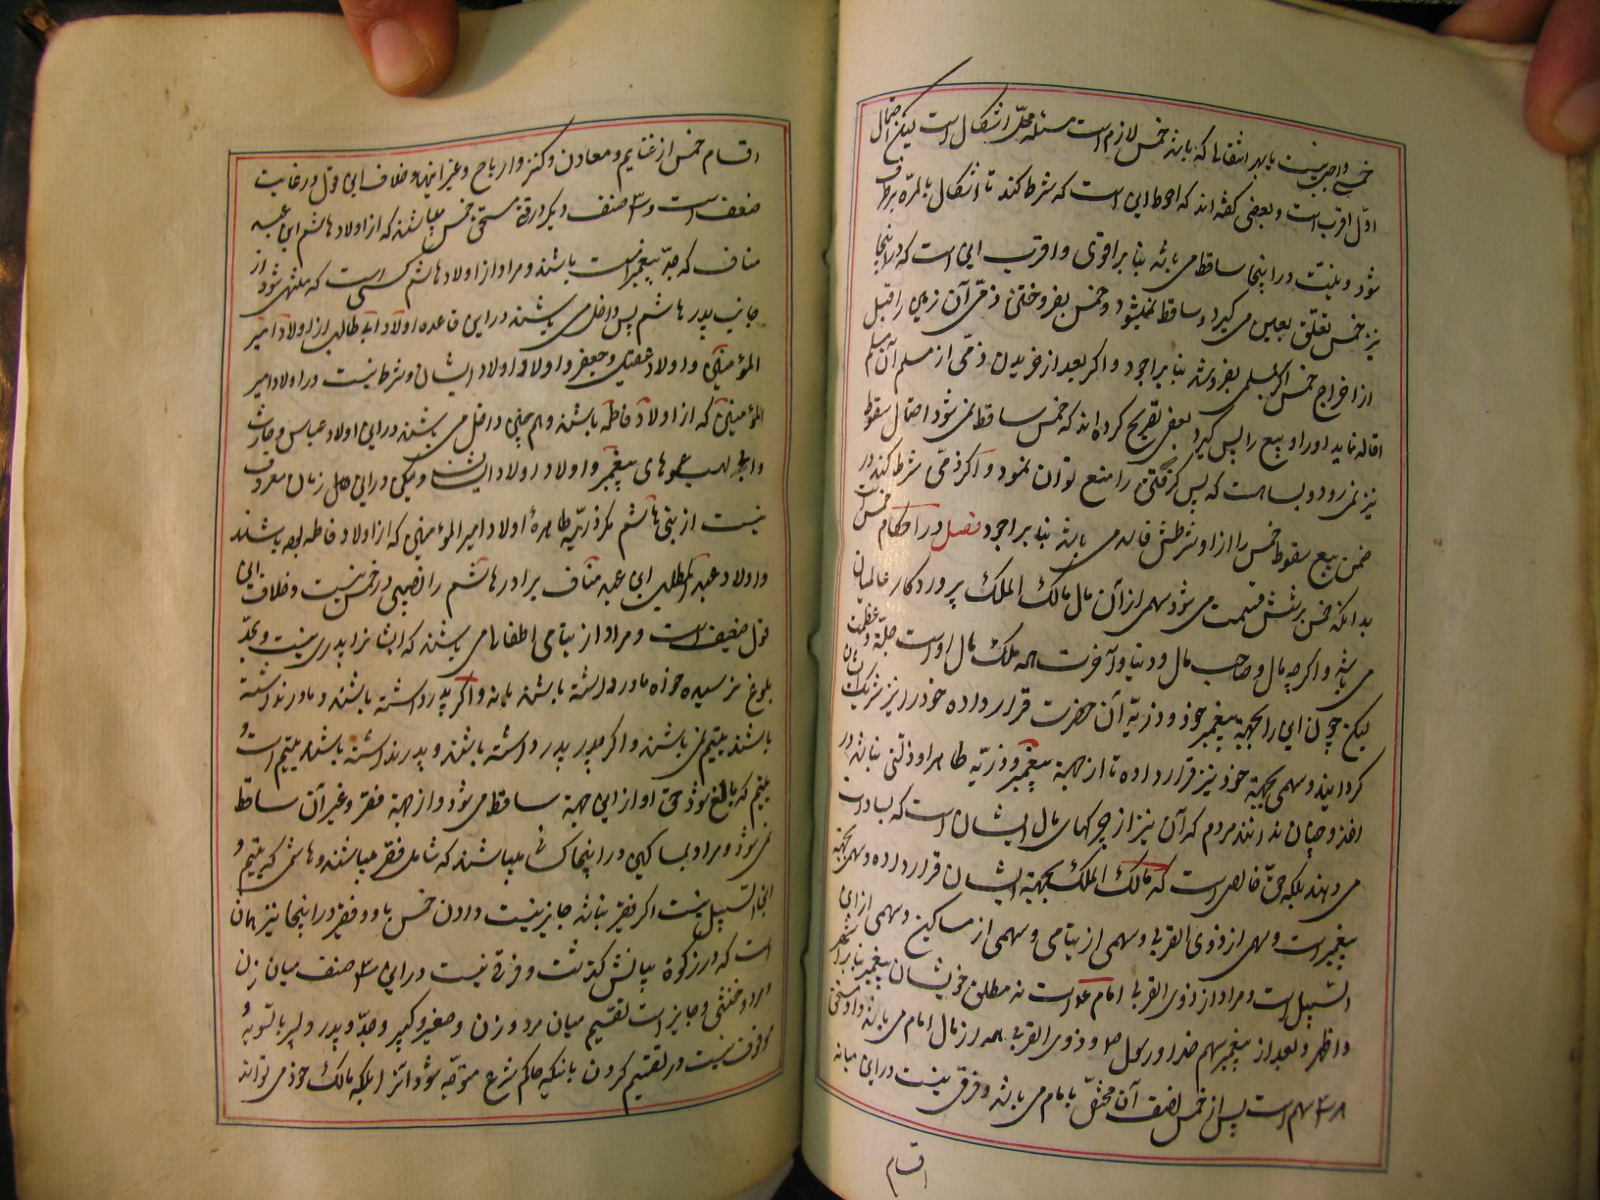 خمسی واجب نیست یا بهر انتقالها که باشد خمس لازم است مسئله محلّ اشکال است لیکن احتمال
اوّل اقرب است و بعضی گفته اند که احوط این است که شرط کند تا اشکال بالمرّه برطرف
شود و نیّت در اینجا ساقط می باشد بنا بر اقوی و اقرب این است که در اینجا
نیز خمس تعلق بعین می گیرد و ساقط نمیشود خمس بفروختن ذمّی آن زمین را قبل
از اخراج خمس اگر بمسلمی بفروشد بنا بر اجود و اگر بعد از خریدن ذمّی از مسلم آن مسلم
اقاله نماید او را و بیع را پس گیرد بعضی تصریح کرده اند که خمس ساقط نمی شود احتمال سقوط
نیز نمی رود و بسا هست که پس گرفتن را منع توان نمود و اگر ذمّی شرط کند در
ضمن بیع سقوط خمس را از او شرطش فاسد می باشد بنا بر اجود فصل در احکام خمس است
بدانکه خمس برشش قسمت می شود سهمی از آن مال مالک الملک پروردکار عالمیان
می باشد و اگرچه مال و صاحب مال و دنیا و آخرت همه ملک مال اوست جلّت عظمته
لیکن چون این را بجهة پیغمبر خود و ذریّه آن حضرت قرار داده خود را نیز شریک ایشان
گردانید و سهمی بجهة خود نیز قرار داده تا از جهة پیغمبر و ذریّه طاهر او ذلّتی نباشد در
اخذ و چنان ندانند مردم که آن نیز از چرکهای مال ایشان است که بسادات
می دهند بلکه حقّ خالص است که مالک الملک بجهة ایشان قرار داده و سهمی بجهة
پیغمبر است و سهمی از ذوی القربی و سهمی از یتامی و سهمی از مساکین و سهمی از ابن
السّبیل است و مراد از ذوی القربی امام ع است نه مطلق خویشان پیغمبر بنا بر اشهر
و اظهر و بعد از پیغمبر سهم خدا و رسول ص و ذوی القربی همه از مال امام می باشد و او مستحق
هر ۳ سهم است پس از خمس نصف آن مختصّ بامام می باشد و فرقی نیست در این میانه
اقسام
اقسام خمس از غنایم و معادن و کنز و ارباح و غیر اینها و خلاف این قول در غایت
ضعف است و ۳ صنف دیگر در قة مستحق خمس میباشند که از اولاد هاشم ابن عبد
مناف که جدّ پیغمبر است باشند و مراد از اولاد هاشم کسی است که منتهی شود از
جانب پدر هاشم پس داخل می باشند در این قاعده اولاد ابی طالب از اولاد امیر
المؤمنین و اولاد عقیل و جعفر و اولاد اولاد ایشان و شرط نیست در اولاد امیر
المؤمنین که از اولاد فاطمه باشند و هم چنین داخل می باشند در این اولاد عباس و حارث
و ابی لهب عموهای پیغمبر و اولاد اولاد ایشان و لیکن در این اهل زمان معروف
نیست از بنی هاشم مگر ذریّه طاهرهٔ اولاد امیر المؤمنین که از اولاد فاطمه بوده باشند
و اولاد عبد المطلب ابن عبد مناف برادر هاشم را نصیبی در خمس نیست و خلاف این
قول ضعیف است و مراد از یتامی اطفال می باشند که ایشانرا پدری نیست و بحدّ
بلوغ نرسیده خواه مادر داشته باشند یا نه و اگر پدر داشته باشند و مادر نداشته
باشند یتیم نمی باشند و اگر پدر پدر داشته باشند و پدر نداشته باشند یتیم است و
یتیم که بالغ شود حق او از این جهة ساقط می شود و از جهة فقر و غیر آن ساقط
نمی شود و مراد بمساکین در اینجا کسانی میباشند که شامل فقر میباشند و هاشمی که یتیم و
ابن السّبیل نیست اگر فقیر نباشد جایز نیست دادن خمس باو و فقیر در اینجا نیز همان
است که در زکوة بیانش گذشت و فرق نیست در این ۳ صنف میان زن
و مرد و خنثی و جایز است تقسیم میان مرد و زن و صغیر و کبیر و جدّ و پدر و پسر بالسّویه و
موقوف نیست در تقسیم کردن بانکه حاکم شرع متوجّه شود انرا بلکه مالک خود می تواند